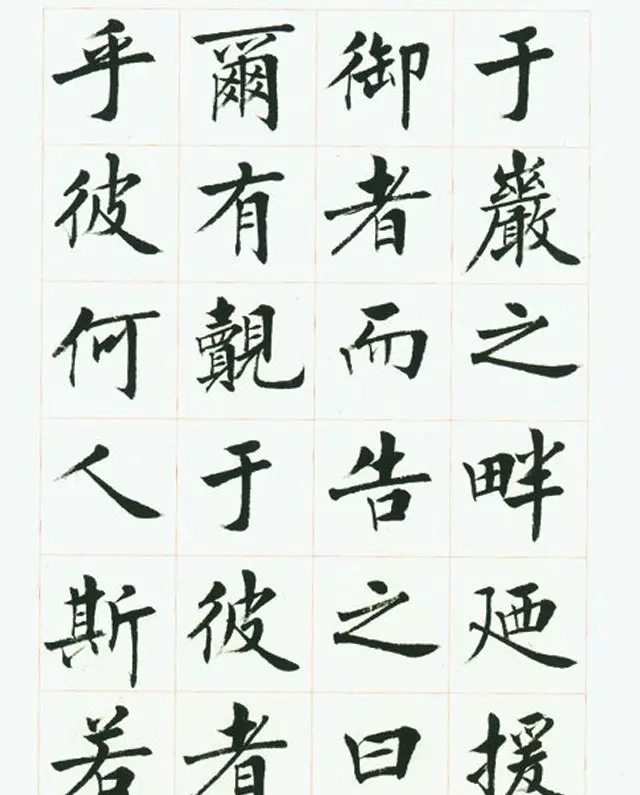 于巖之畔廼援
御者而告之曰
爾有覿于彼者
乎彼何人斯若